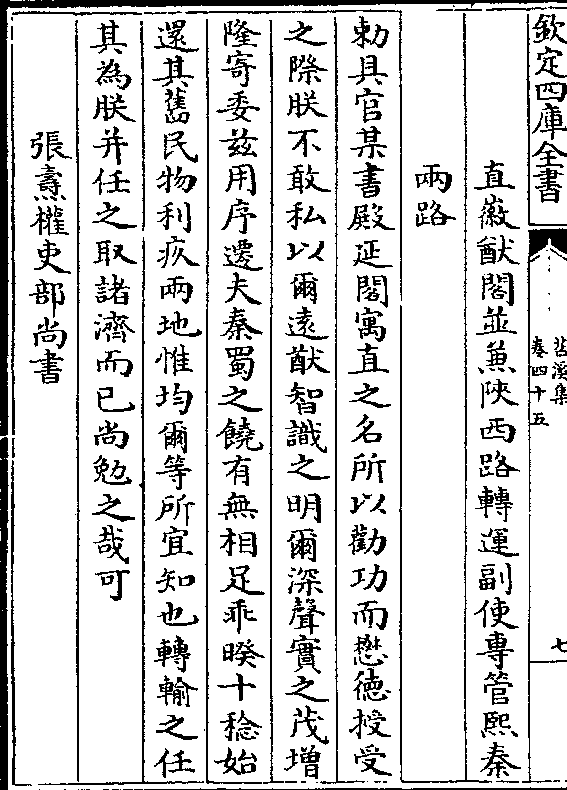 欽定四庫全書
苕溪集
卷四十五
七
直徽猷閣並兼陝西路轉運副使專管熙秦
兩路
勅具官某書殿延閣寓直之名所以勸功而懋德授受
之際朕不敢私以爾遠猷智識之明爾深聲實之茂增
隆寄委兹用序遷夫秦蜀之饒有無相足乖暌十稔始
還其舊民物利疚兩地惟均爾等所宜知也轉輸之任
其為朕并任之取諸濟而已尚勉之哉可
張燾權吏部尚書